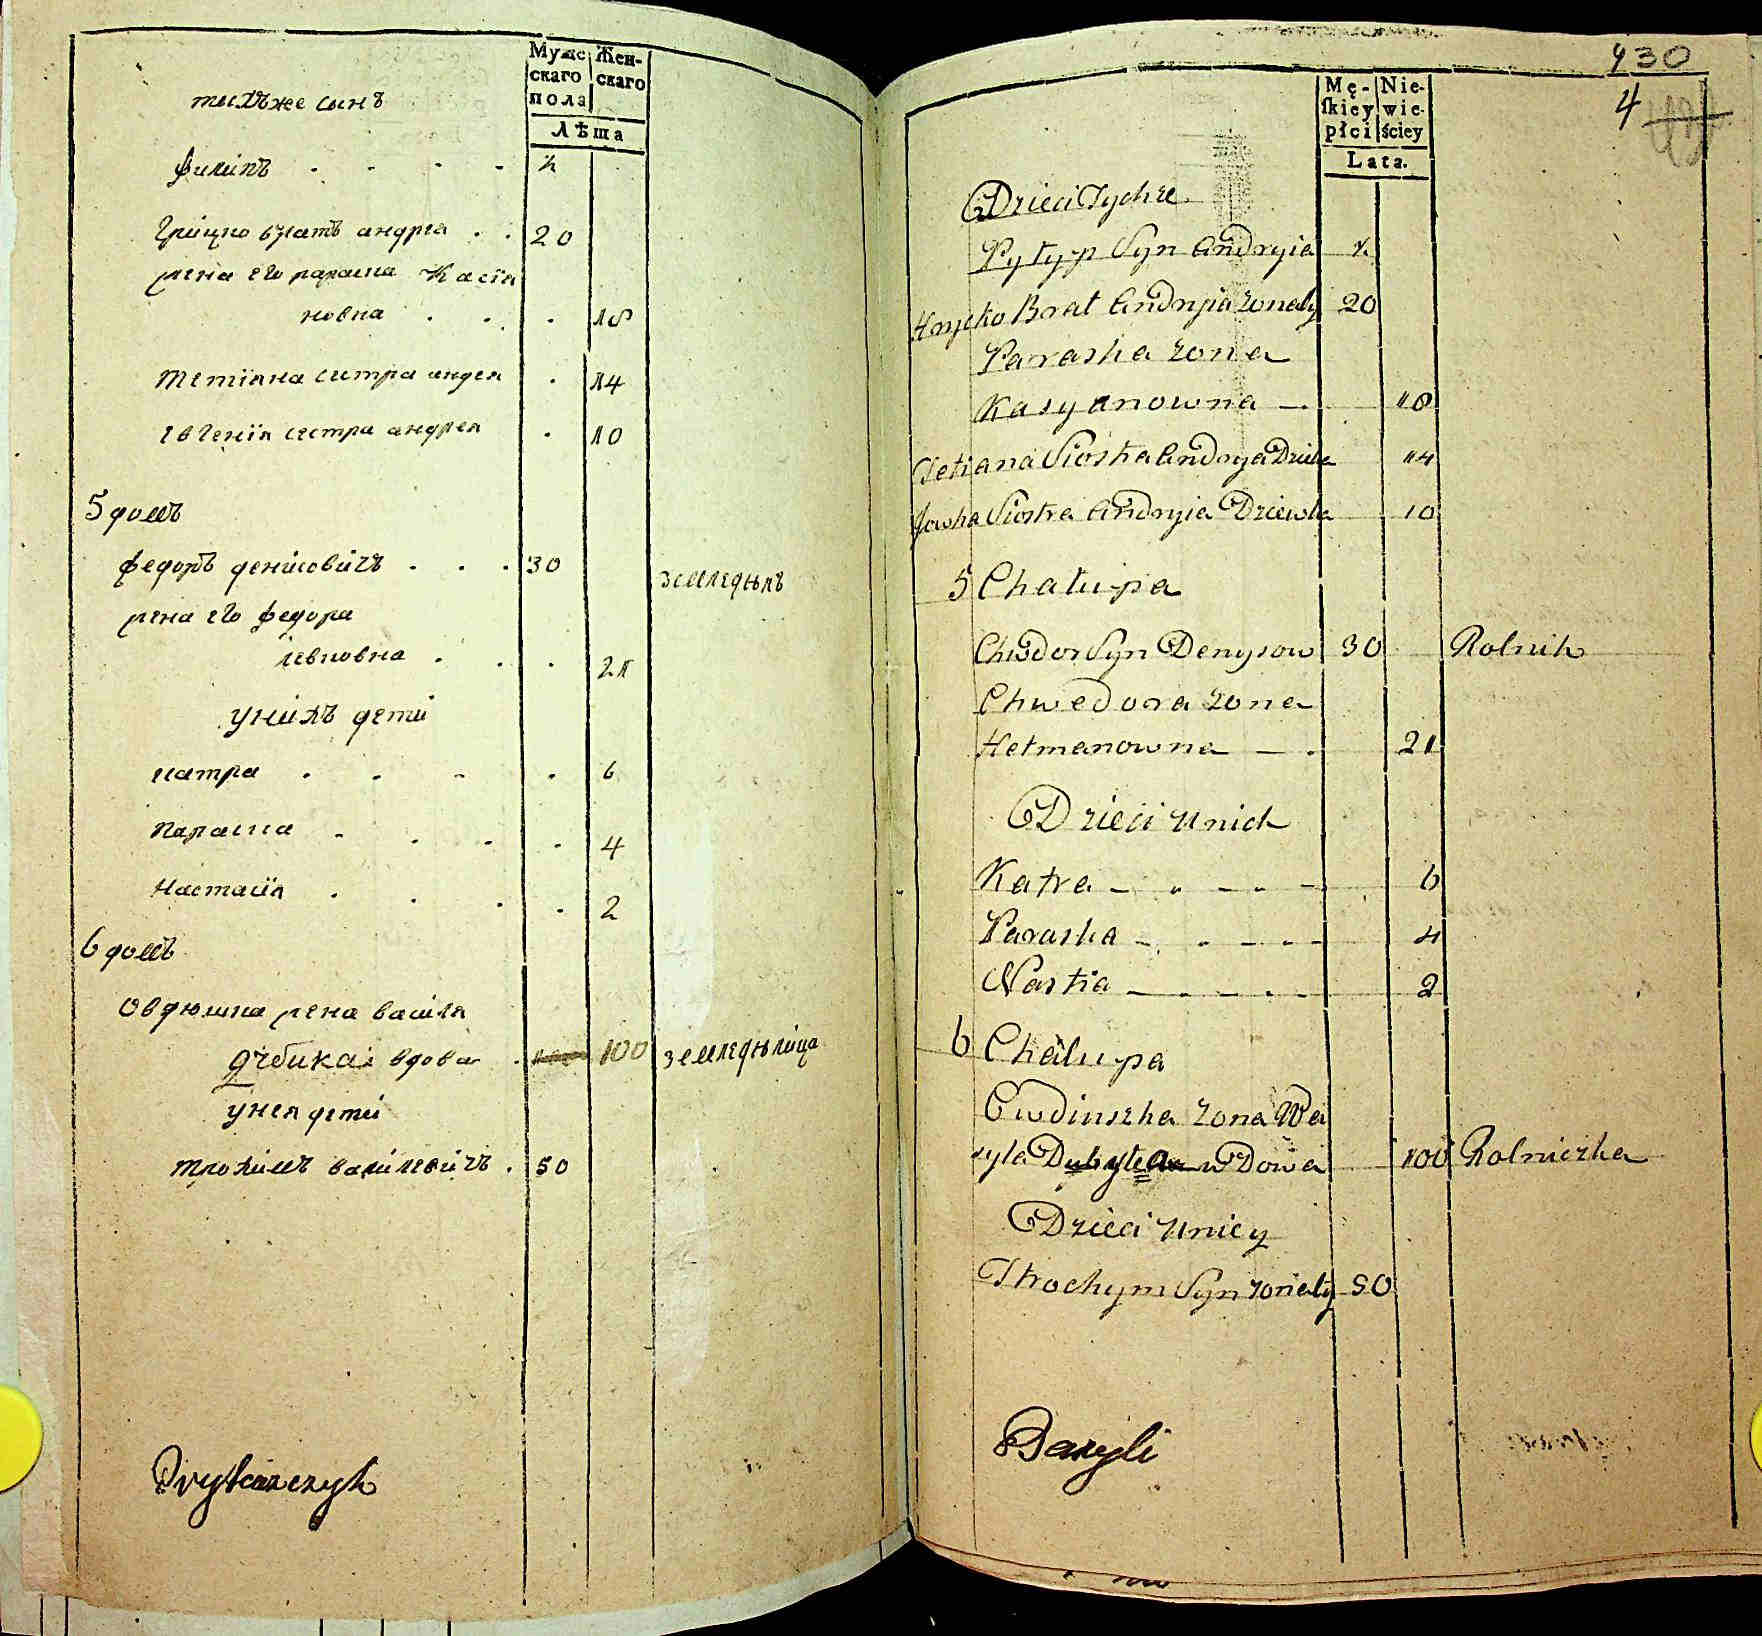 Мужс Жен-
скаго скаго
пола
Лѣта
тыхъже сынъ
филипъ . - - - ½
Грицко братъ андрея . . 20
жена его параска Касія
новна . . . 18
тетіяна сестра андрея . 14
евгенія сестра андрея . 10
5 домъ
федоръ денісовичъ . . . 30 земледѣлъ
жена его федора
левковна . . . 21
унихъ дети
катра . . - . 6
параска - . - . 4
Настасія . . . . 2
6 домъ
Овдюшка жена васіля
дубика вдова . 100 земледѣлица
унея дети
трохимъ василевичъ . 50
Prytcarczyk
430
4
Mę- Nie-
ſkiey wie-
płci ściey
Lata.
Dzieci Tychże
Pyłyp Syn Andryia ½
Hrycko Brat Andryia żonaty 20
Paraska żona
Kasyanowna — . 18
Tetiana Siostra Andryia Dziewka 14
Jowha Siostra Andryia Dziewka 10
5 Chałupa
Chwedor Syn Denysow 30 Rolnik
Chwedora żona
Hetmanowna — . 21
Dzieci unich
Katra — . — . — 6
Paraska — . — . — 4
Nastia — . — . — 2
6 Chałupa
Owdiuszka żona Wa
syla Dubyka wdowa 100 Rolniczka
Dzieci uniey
Trochym Syn żonaty 50
Bazyli